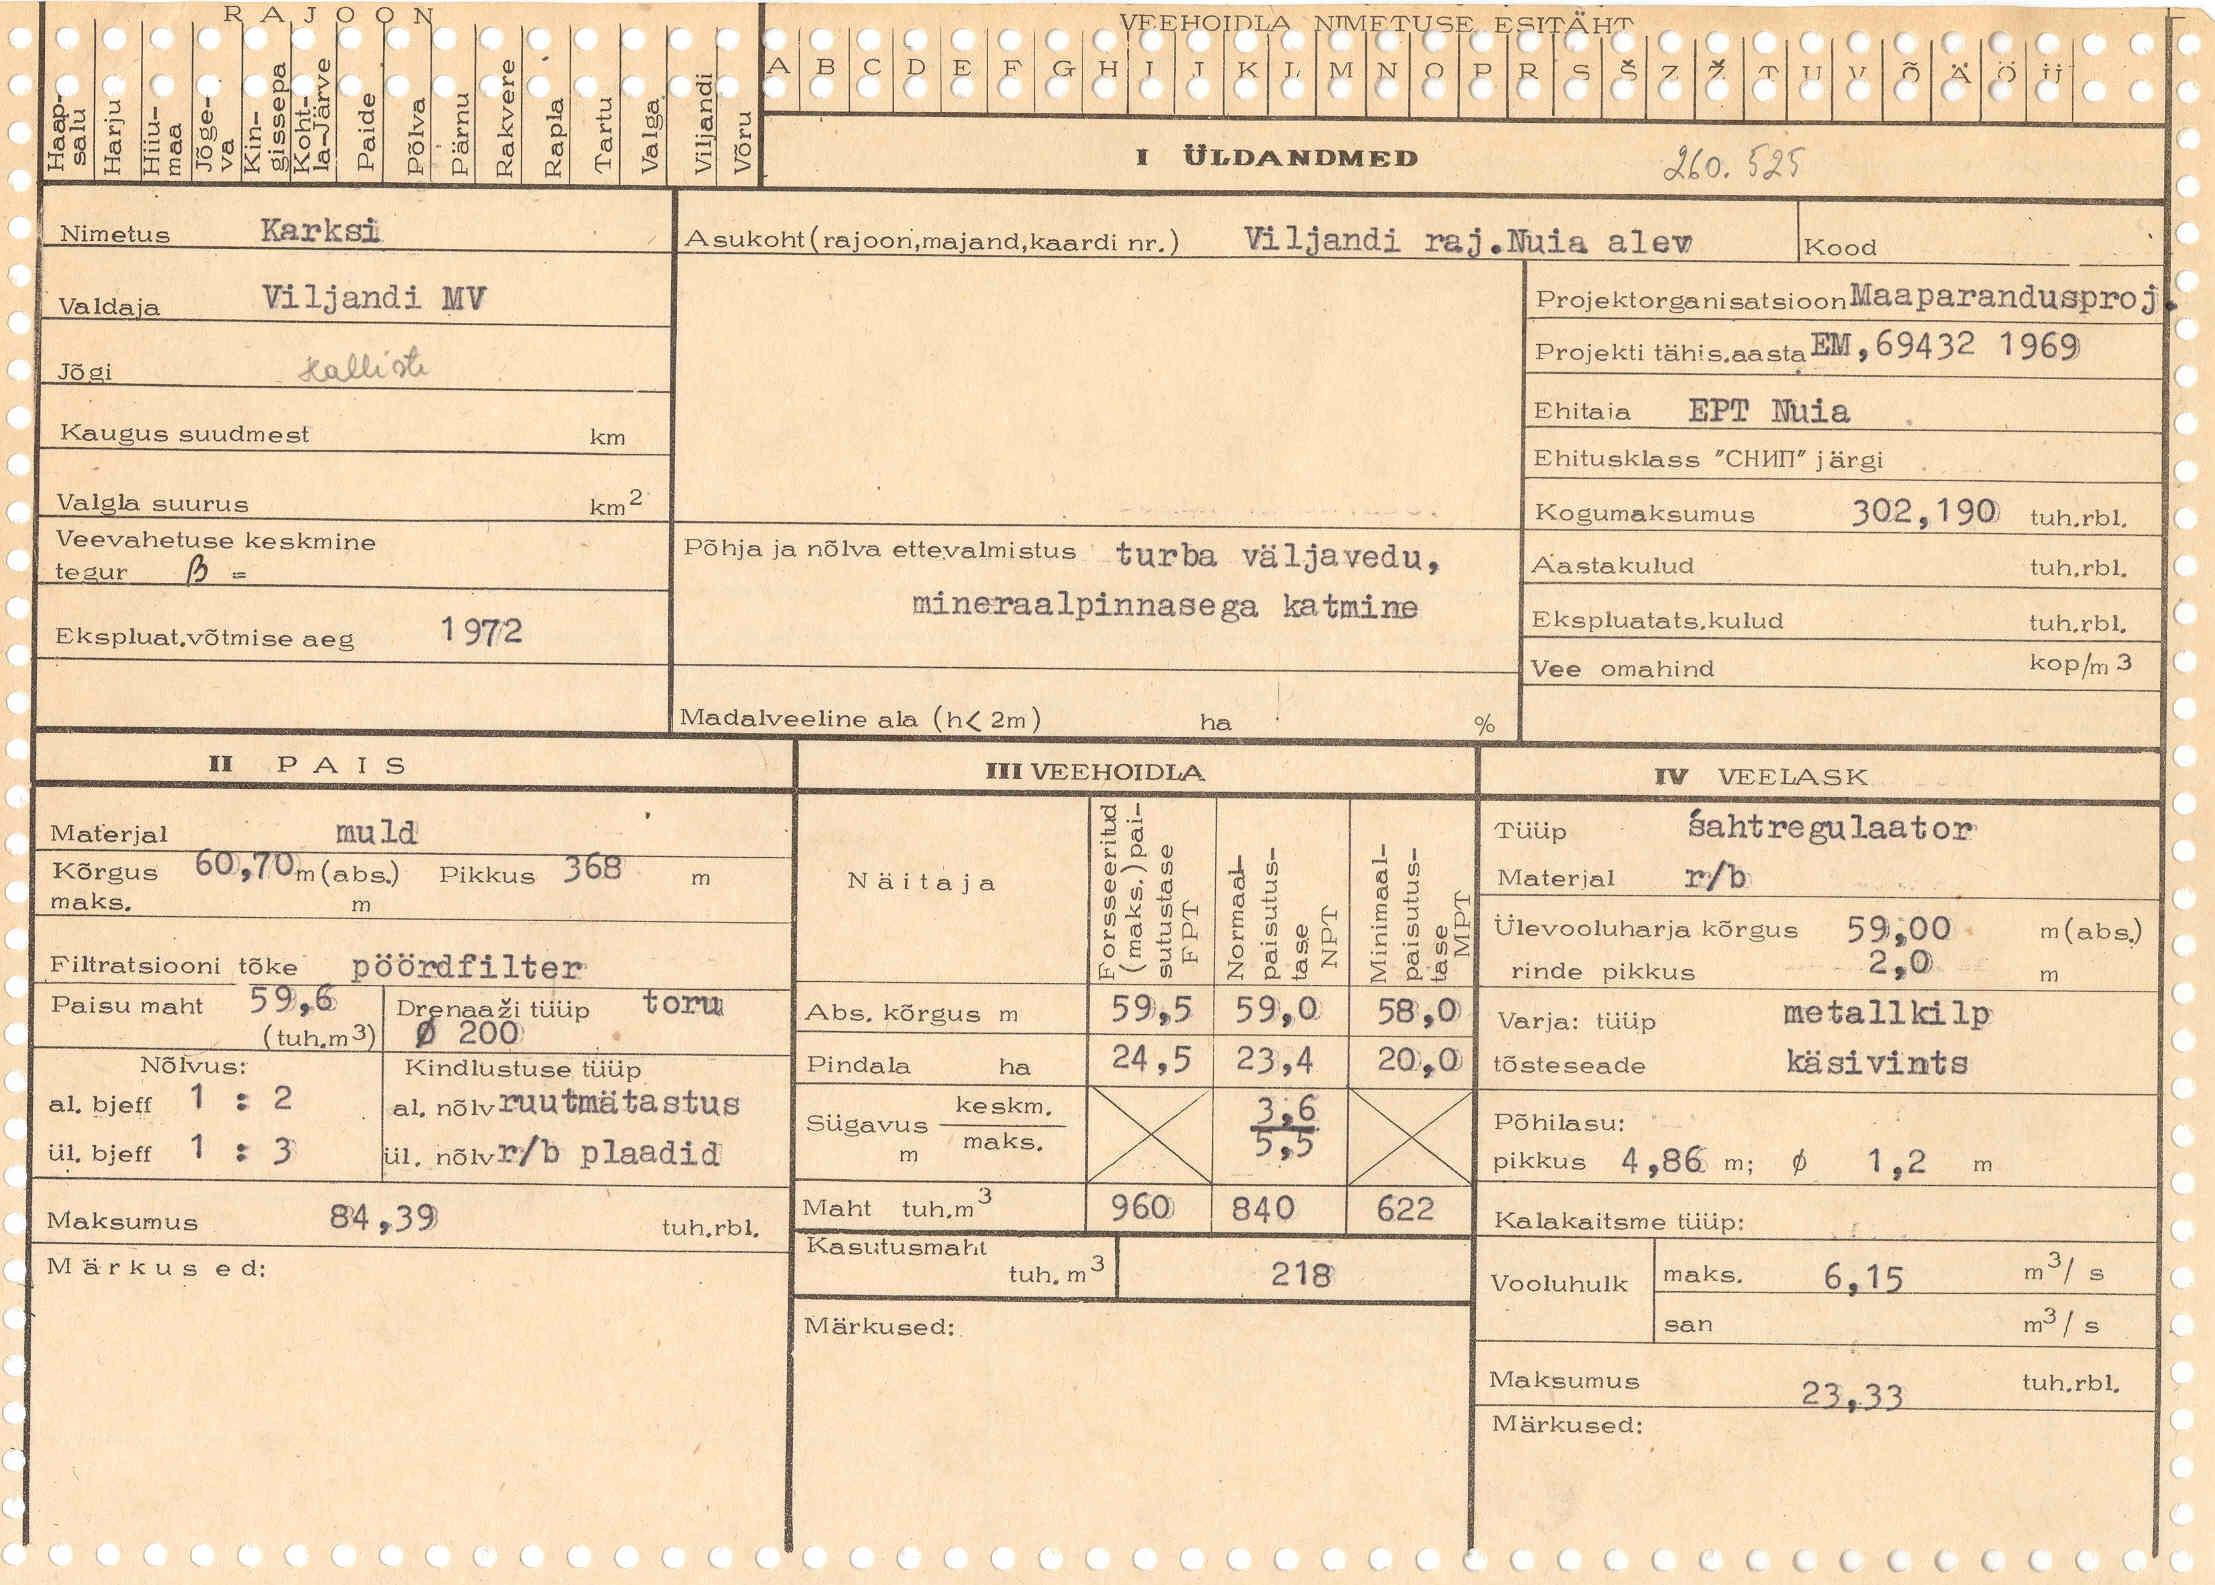 RAJOON
VEEHOIDLA NIMETUSE ESITÄHT
Haap-salu Harju Hiiu-maa Jõge-va Kin-gissepa Koht-la-Järve Paide Põlva Pärnu Rakvere Rapla Tartu Valga Viljandi Võru
A B C D E F G H I J K L M N O P R S Š Z Ž T U V Õ Ä Ö Ü
I ÜLDANDMED 260.525
Nimetus Karksi
Asukoht (rajoon, majand, kaardi nr.) Viljandi raj. Nuia alev
Kood
Valdaja Viljandi MV
Jõgi Halliste
Kaugus suudmest km
Valgla suurus km2
Veevahetuse keskmine
tegur β =
Ekspluat. võtmise aeg 1972
Põhja ja nõlva ettevalmistus turba väljavedu,
mineraalpinnasega katmine
Madalveeline ala (h< 2m) ha %
Projektorganisatsioon Maaparandusproj.
Projekti tähis. aasta EM, 69432 1969
Ehitaja EPT Nuia
Ehitusklass "СНИП" järgi
Kogumaksumus 302,190 tuh.rbl.
Aastakulud tuh.rbl.
Ekspluatats.kulud tuh.rbl.
Vee omahind kop/m3
II PAIS
Materjal muld
Kõrgus 60,70 m (abs.) Pikkus 368 m
maks. m
Filtratsiooni tõke pöördfilter
Paisu maht 59,6
(tuh.m3)
Drenaaži tüüp toru
Ø 200
Nõlvus:
al. bjeff 1 : 2
ül. bjeff 1 : 3
Kindlustuse tüüp
al. nõlv ruutmätastus
ül. nõlv r/b plaadid
Maksumus 84,39 tuh.rbl.
Märkused:
III VEEHOIDLA
Näitaja
Forsseeritud (maks.) pai-sutustase FPT
Normaal-paisutus-tase NPT
Minimaal-paisutus-tase MPT
Abs. kõrgus m 59,5 59,0 58,0
Pindala ha 24,5 23,4 20,0
Sügavus keskm. 3,6
m maks. 5,5
Maht tuh.m3 960 840 622
Kasutusmaht
tuh. m3 218
Märkused:
IV VEELASK
Tüüp šahtregulaator
Materjal r/b
Ülevooluharja kõrgus 59,00 m (abs.)
rinde pikkus 2,0 m
Varja: tüüp metallkilp
tõsteseade käsivints
Põhilasu:
pikkus 4,86 m; ϕ 1,2 m
Kalakaitsme tüüp:
Vooluhulk maks. 6,15 m3/s
san m3/s
Maksumus 23,33 tuh.rbl.
Märkused: